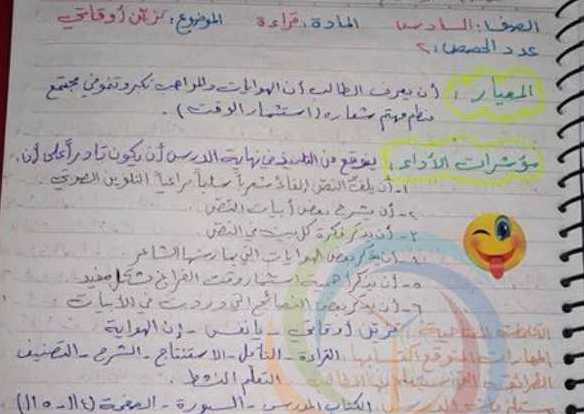 الصف: السادس المادة: قراءة الموضوع: زيّن أوقاتي
عدد الحصص: ٢
المعيار: أن يعرف الطالب أن الهوايات والمواهب تكبر وتنمو في مجتمع
منظم مهتم شعاره (استثمار الوقت).
مؤشرات الأداء: يتوقع من التلميذ في نهاية الدرس أن يكون قادراً على أن:
١- أن يلقي النص إلقاءً شعرياً سليماً مراعياً التلوين الصوتي.
٢- أن يشرح بعض أبيات النص.
٣- أن يذكر فكرة كل بيت في النص.
٤- أن يذكر بعض الهوايات التي يمارسها الشاعر
٥- أن يذكر أهمية استثمار وقت الفراغ بشكل مفيد.
٦- أن يذكر بعض النصائح التي وردت في الأبيات
زيّن أوقاتي - يا نفس - إن الهواية
المهارات المتوقع القراءة - التأمل - الاستنتاج - الشرح - التصنيف
الطرائق التعلم النشط.
الكتاب المدرسي - السبورة - الصفحة (١٤ - ١٥)